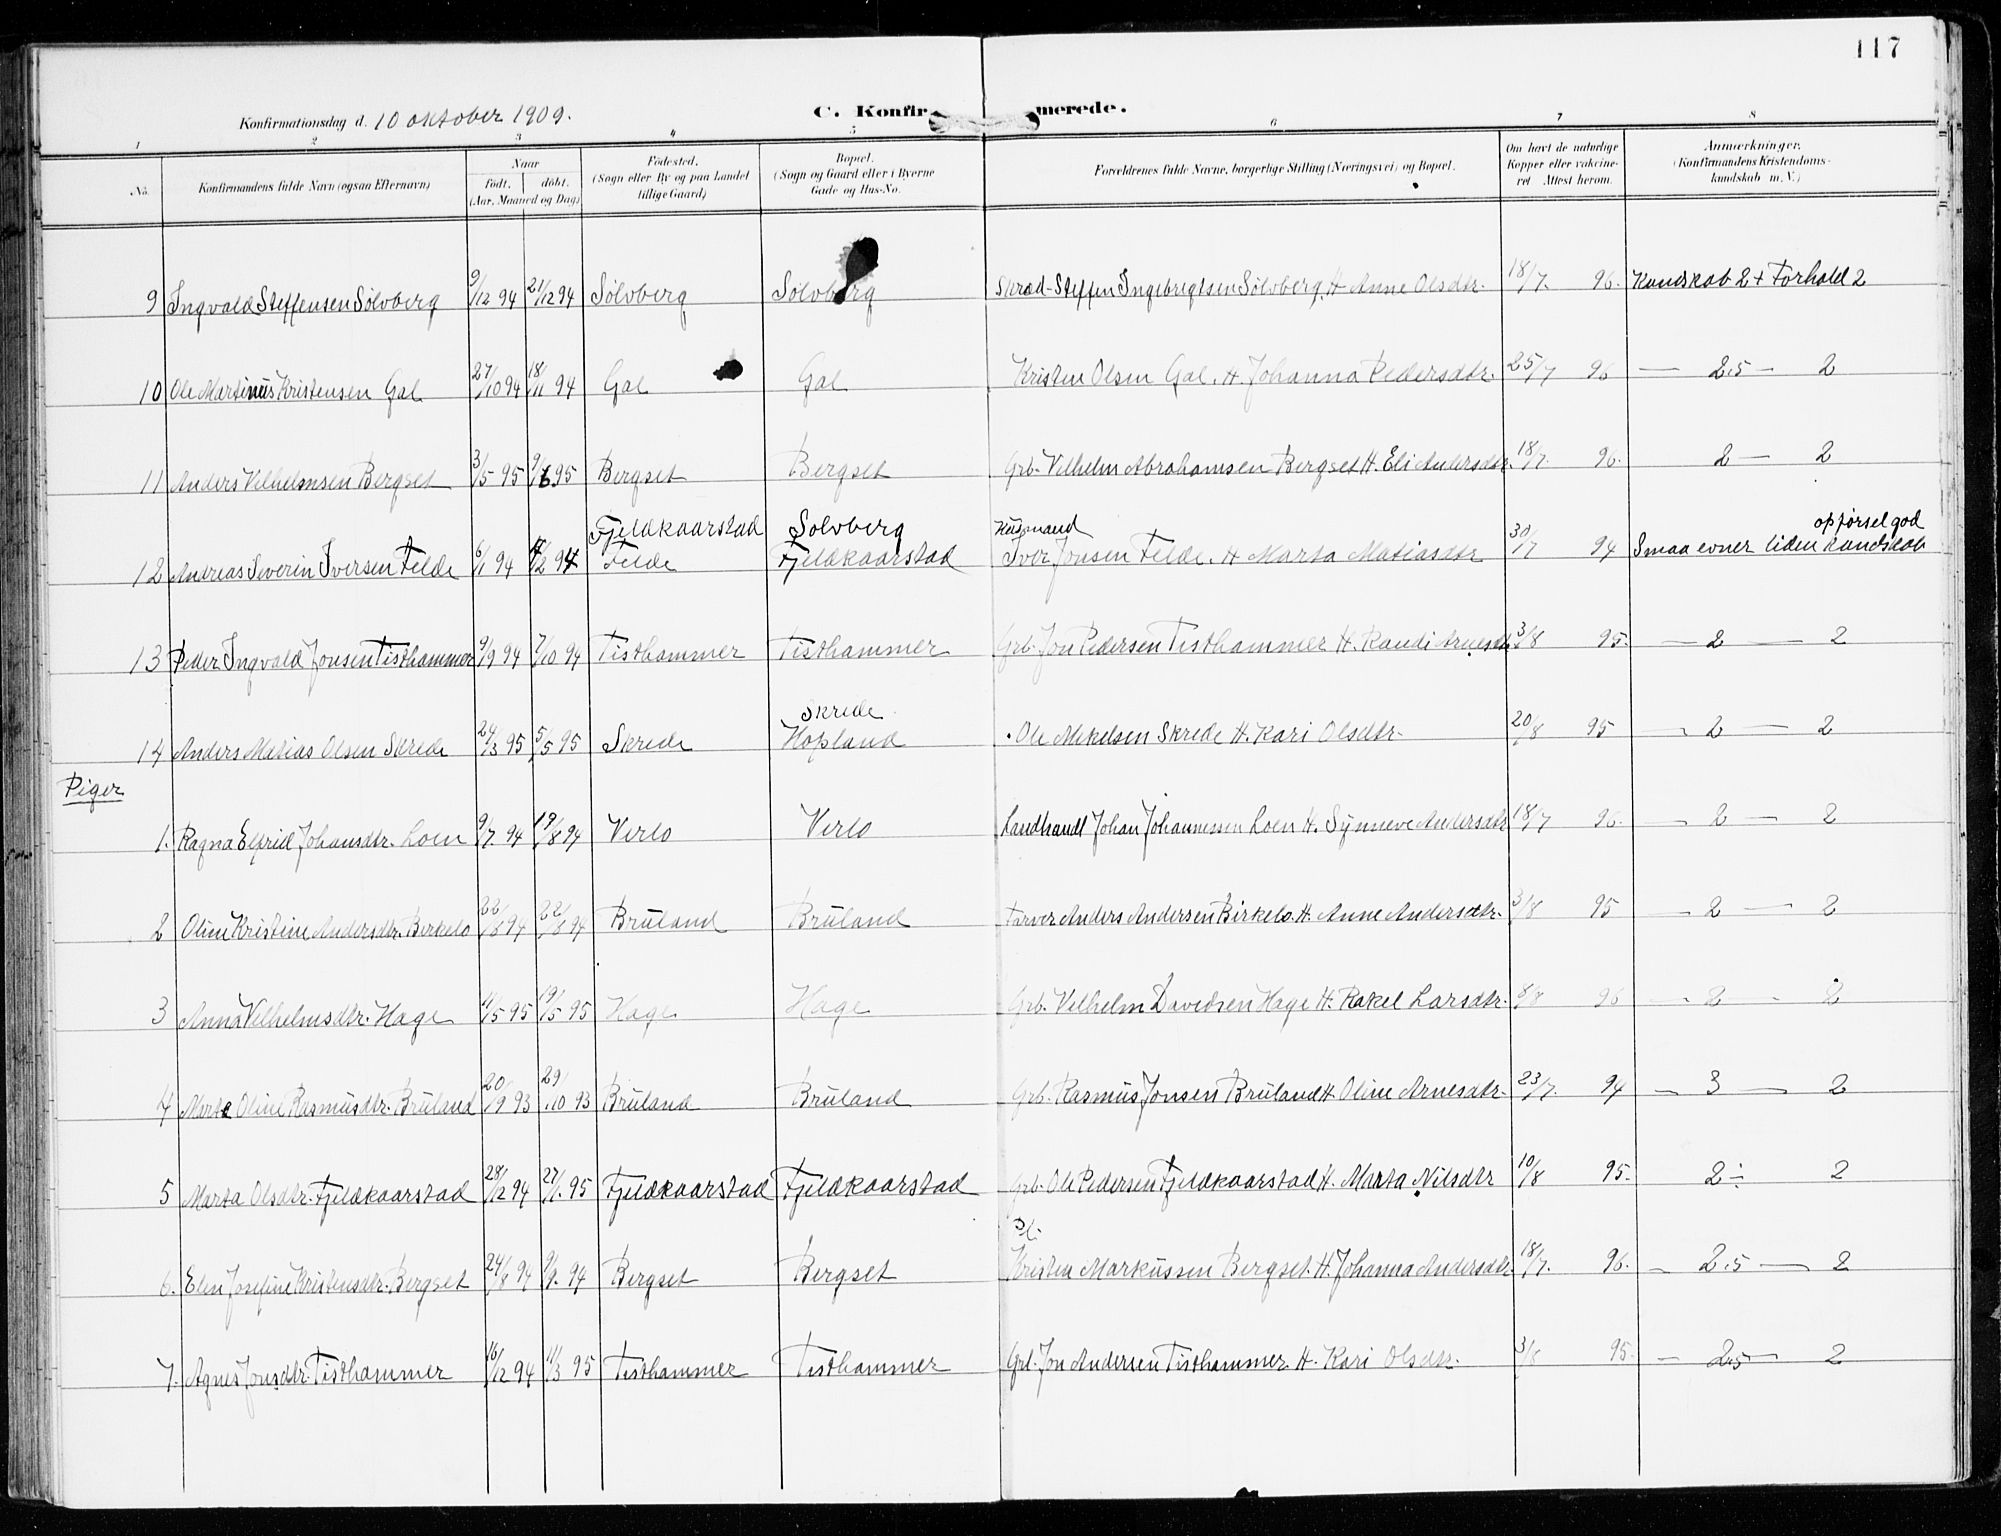 117
Konfirmationsdag d. 10 oktober 1909. C. Konfir merede.
1 2 3 4 5 6 7 8
No. Konfirmandens fulde Navn (ogsaa Efternavn) Naar födt. döbt. (Aar, Maaned og Dag) Födested. (Sogn eller By og paa Landet tillige Gaard) Bopæl. (Sogn og Gaard eller i Byerne Gade og Hus-No. Forældrenes fulde Navne, borgerlige Stilling (Næringsvei) og Bopæl. Om havt de naturlige Kopper eller vakcineret. Attest herom. Anmærkninger. (Konfirmandens Kristendomskundskab m. V.)
9 Ingvald Steffensen Sölvberg 9/12 94 21/12 94 Sölvberg Sölvberg Skræd- Steffen Ingebrigtsen Sölvberg. H. Anne Olsdtr. 18/7. 96. Kundskab 2+ Forhold 2
10 Ole Martinus Kristensen Gal 27/10 94 18/11 94 Gal Gal Kristen Olsen Gal. H. Johanna Pedersdtr. 25/7 96 — 2.5 — 2
11 Anders Vilhelmsen Bergset 3/5 95 9/6 95 Bergset Bergset Grb. Vilhelm Abrahamsen Bergset H. Eli Andersdtr. 18/7. 96. 2 — 2
Fjeldkaarstad Solvberg Husmand opförsel god
12 Andreas Severin Iversen Felde 6/1 94 /2 94 Felde Fjeldkaarstad Iver Jonsen Felde. H. Marta Matiasdtr 30/7 94 Smaa evner liden kundskab
13 Peder Ingvald Jonsen Tisthammer 9/9 94 7/10 94 Tisthammer Tisthammer Grb. Jon Pedersen Tisthammer H. Randi Arnesdtr 3/8 95. — 2 — 2
Skrede
14 Anders Matias Olsen Skrede 24/3 95 5/5 95 Skrede Hopland Ole Mikelsen Skrede H. Kari Olsdtr. 20/8 95 — 2 — 2
Piger
1. Ragna Elfrid Johansdtr. Loen 9/7. 94 19/8 94 Verlo Verlo Landhandl Johan Johannessen Loen H. Synneve Andersdtr 18/7 96. — 2 — 2
2 Oline Kristine Andersdtr. Birkelo 22/8 94 22/8 94 Bruland Bruland Farver Anders Andersen Birkelo. H. Anne Andersdtr. 3/8 95 — 2 — 2
3 Anna Vilhelmsdtr. Hage 11/5 95 19/5 95 Hage Hage Grb. Vilhelm Davidsen Hage H. Rakel Larsdtr. 8/8 96 — 2 - 2
4 Marte Oline Rasmusdtr. Bruland 20/9 93 29/10 93 Bruland Bruland Grb. Rasmus Jonsen Bruland H. Oline Arnesdtr. 23/7. 94 — 3 — 2
5 Marta Olsdtr. Fjeldkaarstad 28/12 94 27/1. 95 Fjeldkaarstad Fjeldkaarstad Grb. Ole Pedersen Fjeldkaarstad H. Marta Nilsdtr 10/8 95. 2 ÷ 2
6. Elen Josefine Kristensdtr. Bergset 24/8 94 9/9. 94 Bergset Bergset Kristen Markussen Bergset. H. Johanna Andersdtr. 18/7. 96. — 2.5 — 2
7. Agnes Jonsdtr. Tisthammer 16/12 94 11/3 95 Tisthammer Tisthammer Grb. Jon Andersen Tisthammer. H. Kari Olsdtr. 3/8 95. — 2.5 — 2